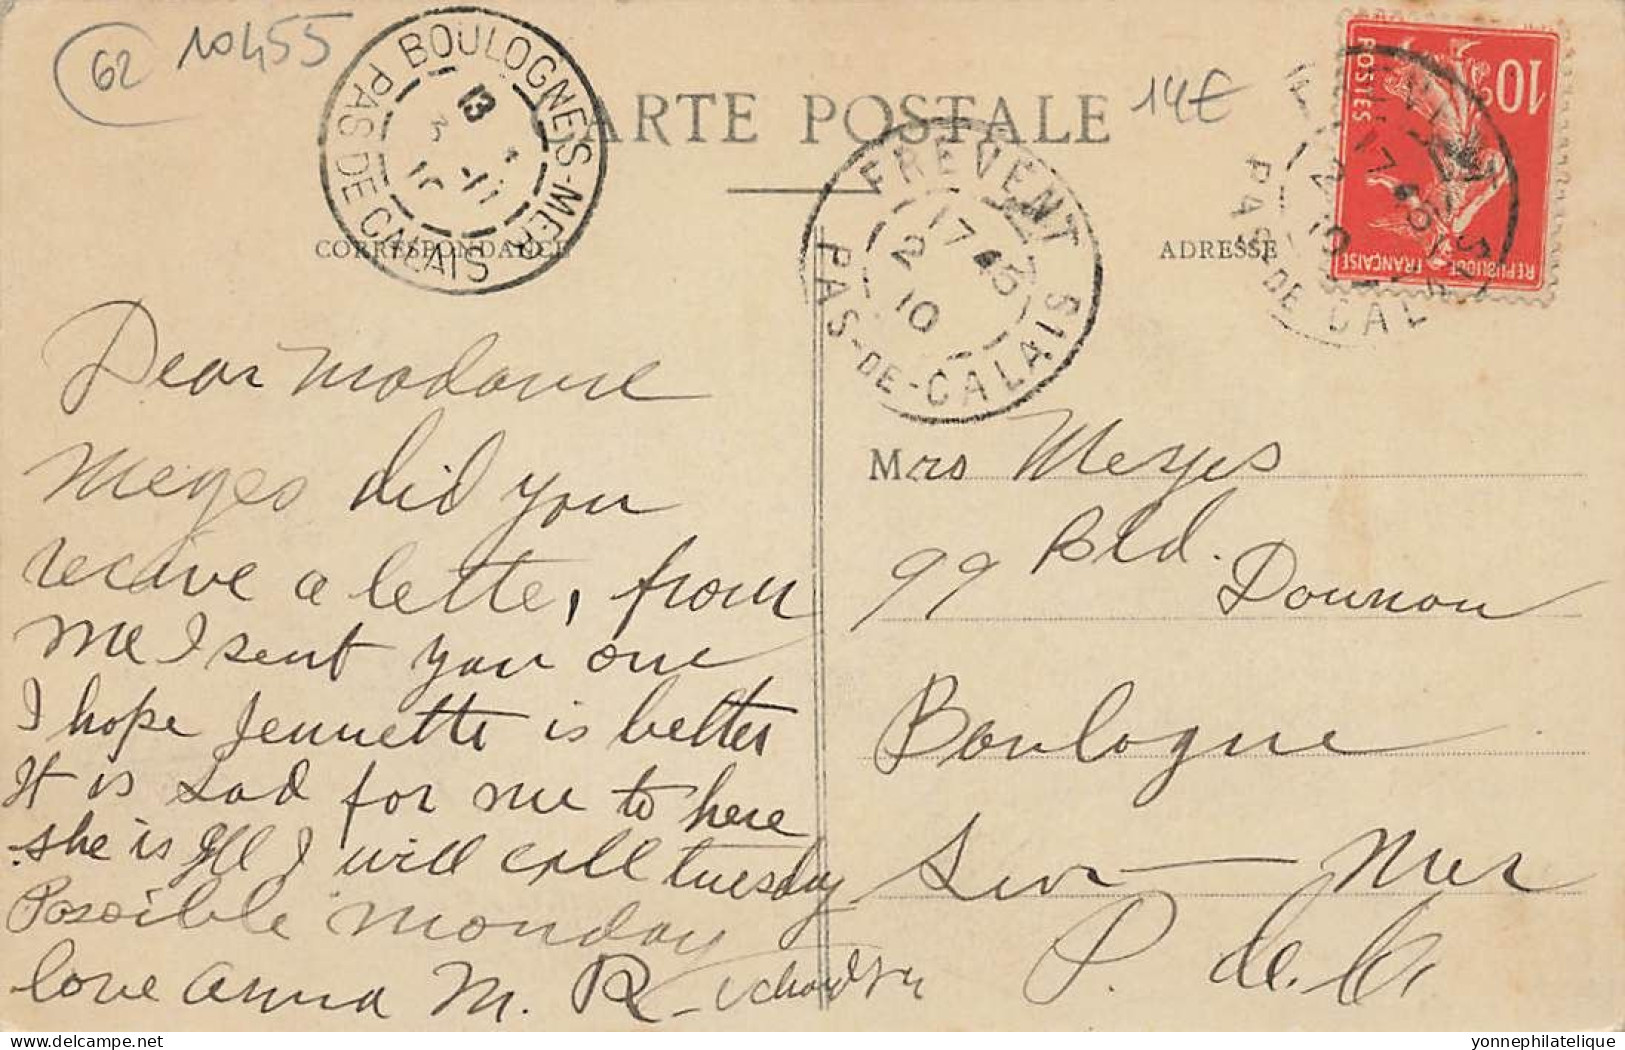 62
10455
BOULOGNE-S-MER
PAS DE CALAIS
13
CARTE POSTALE
14€
FREVENT
17 45
2
10
PAS-DE-CALAIS
10c
POSTES
REPUBLIQUE FRANÇAISE
PAS-DE-CAL
CORRESPONDANCE
ADRESSE
Dear Madame
Meyes did you
recive a letter, from
me I sent you one
I hope Jennette is better
It is sad for me to here
she is Ill I will call tuesday
Possible Monday
love Anna M. Richardson
Mrs Meyes
99 Bld. Dounou
Boulogne
Sur Mer
P. de. C.
yonnephilatelique